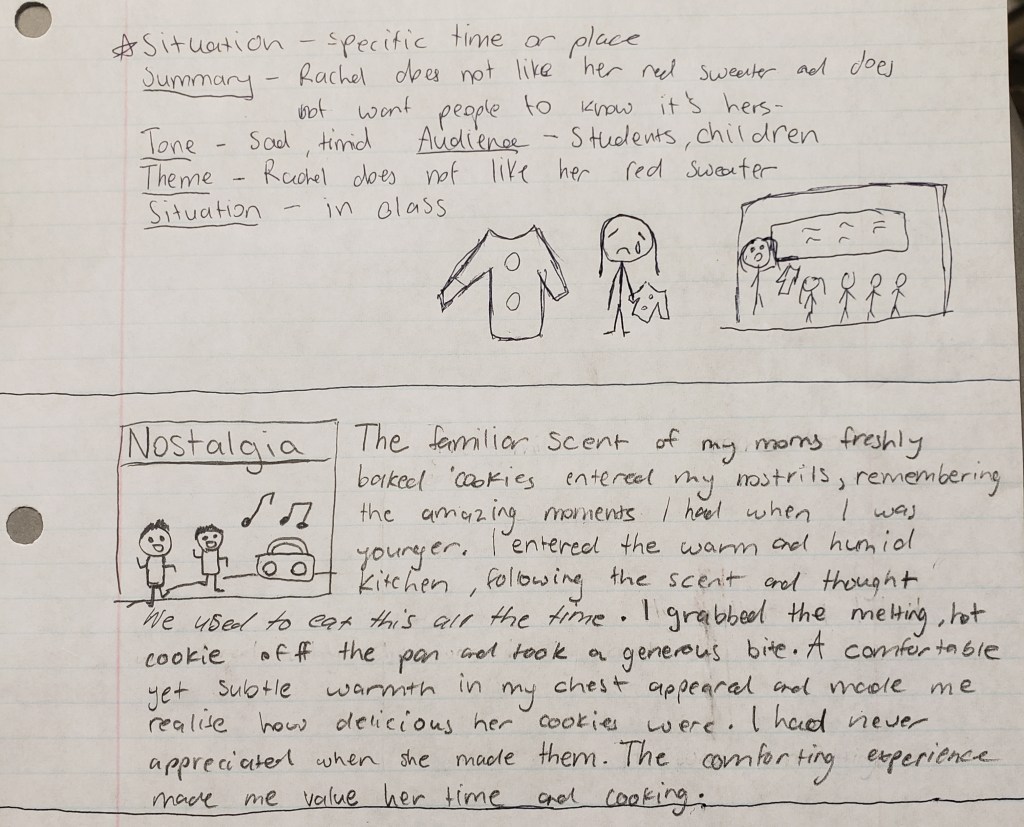 ☆Situation - specific time or place
Summary - Rachel does not like her red sweater ad does
not want people to know it's hers-
Tone - Sad, timid Audience - Students, children
Theme - Rachel does not like her red sweater
Situation - in Class
Nostalgia
The familiar scent of my moms freshly
baked cookies entered my nostrils, remembering
the amazing moments I had when I was
younger. I entered the warm and humid
kitchen, following the scent and thought
We used to eat this all the time. I grabbed the melting, hot
cookie off the pan and took a generous bite. A comfortable
yet subtle warmth in my chest appeared and made me
realise how delicious her cookies were. I had never
appreciated when she made them. The comforting experience
made me value her time and cooking.